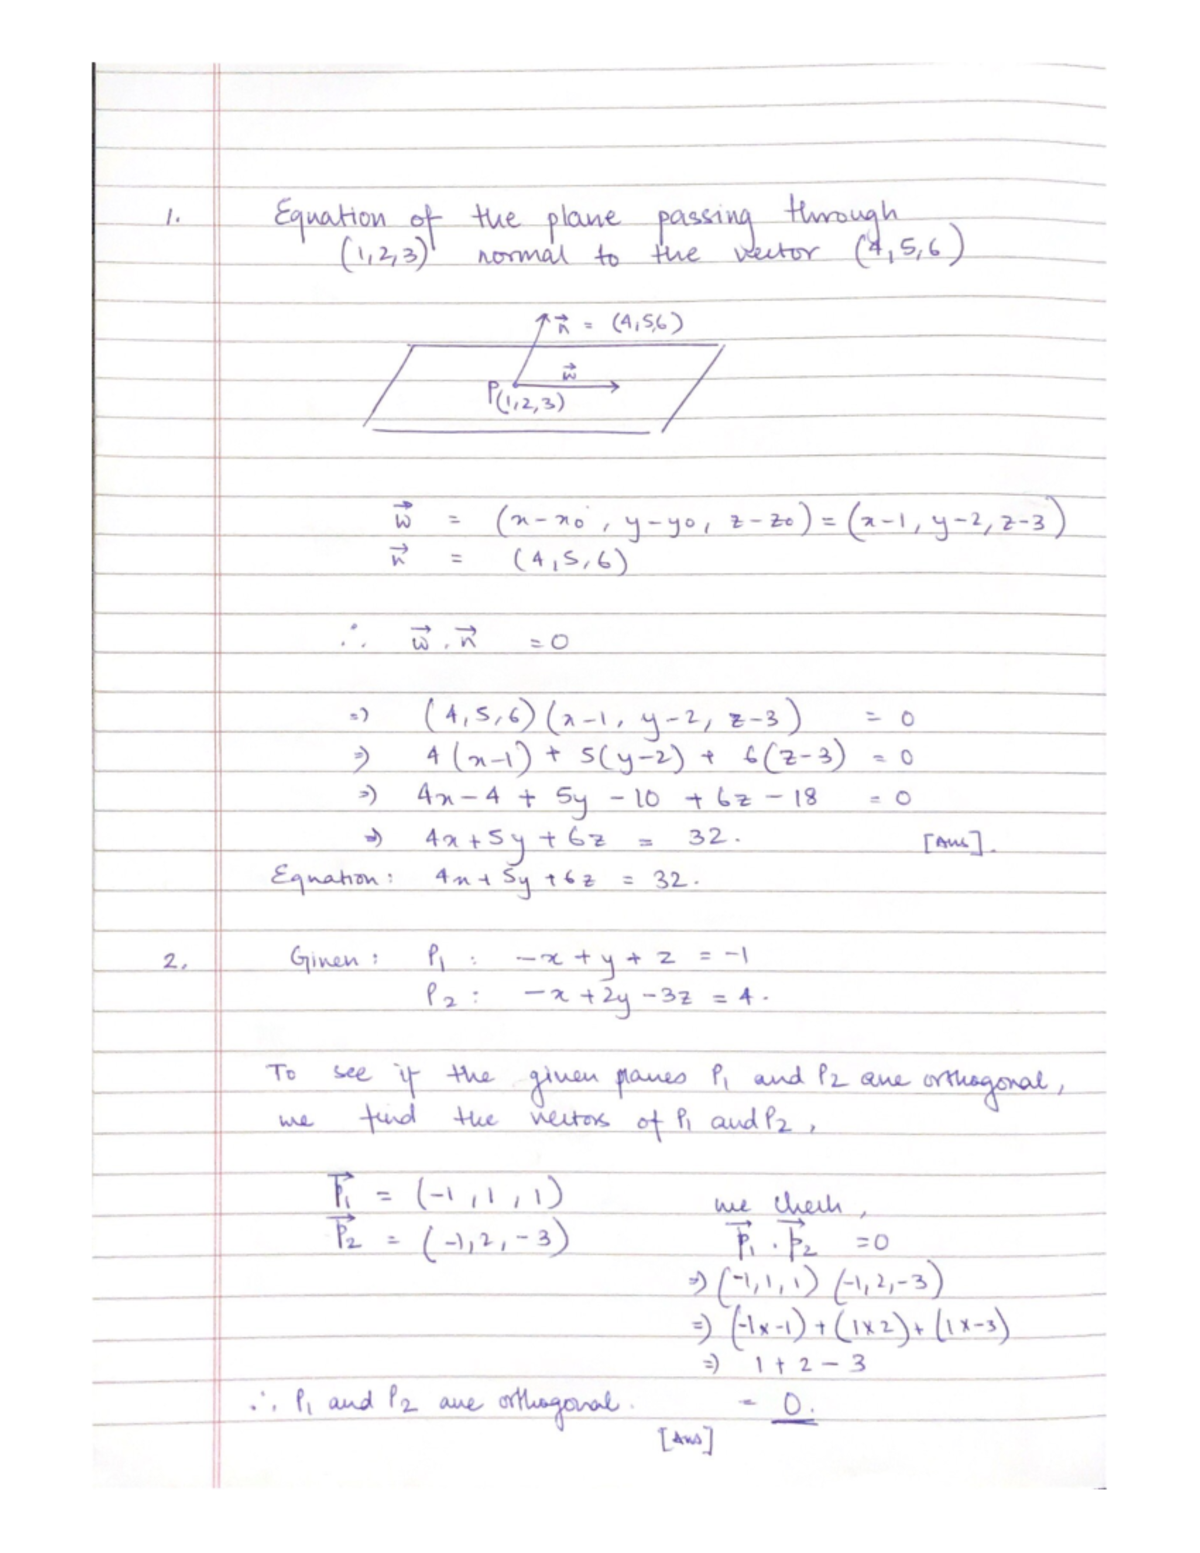 1. Equation of the plane passing through
(1,2,3) normal to the vector (4,5,6)
n⃗ = (4,5,6)
w⃗
P(1,2,3)
w⃗ = (x-x0, y-y0, z-z0) = (x-1, y-2, z-3)
n⃗ = (4,5,6)
∴ w⃗ . n⃗ = 0
=) (4,5,6)(x-1, y-2, z-3) = 0
=) 4(x-1) + 5(y-2) + 6(z-3) = 0
=) 4x-4 + 5y - 10 + 6z - 18 = 0
=) 4x+5y+6z = 32. [Ans].
Equation: 4x+5y+6z = 32.
2. Given: P1 : -x+y+z = -1
P2 : -x+2y-3z = 4.
To see if the given planes P1 and P2 are orthogonal,
we find the vectors of P1 and P2,
P⃗1 = (-1,1,1)
P⃗2 = (-1,2,-3)
we check,
P⃗1 . P⃗2 = 0
=) (-1,1,1) (-1,2,-3)
=) (-1x-1)+(1x2)+(1x-3)
=) 1+2-3
= 0.
∴ P1 and P2 are orthogonal.
[Ans]